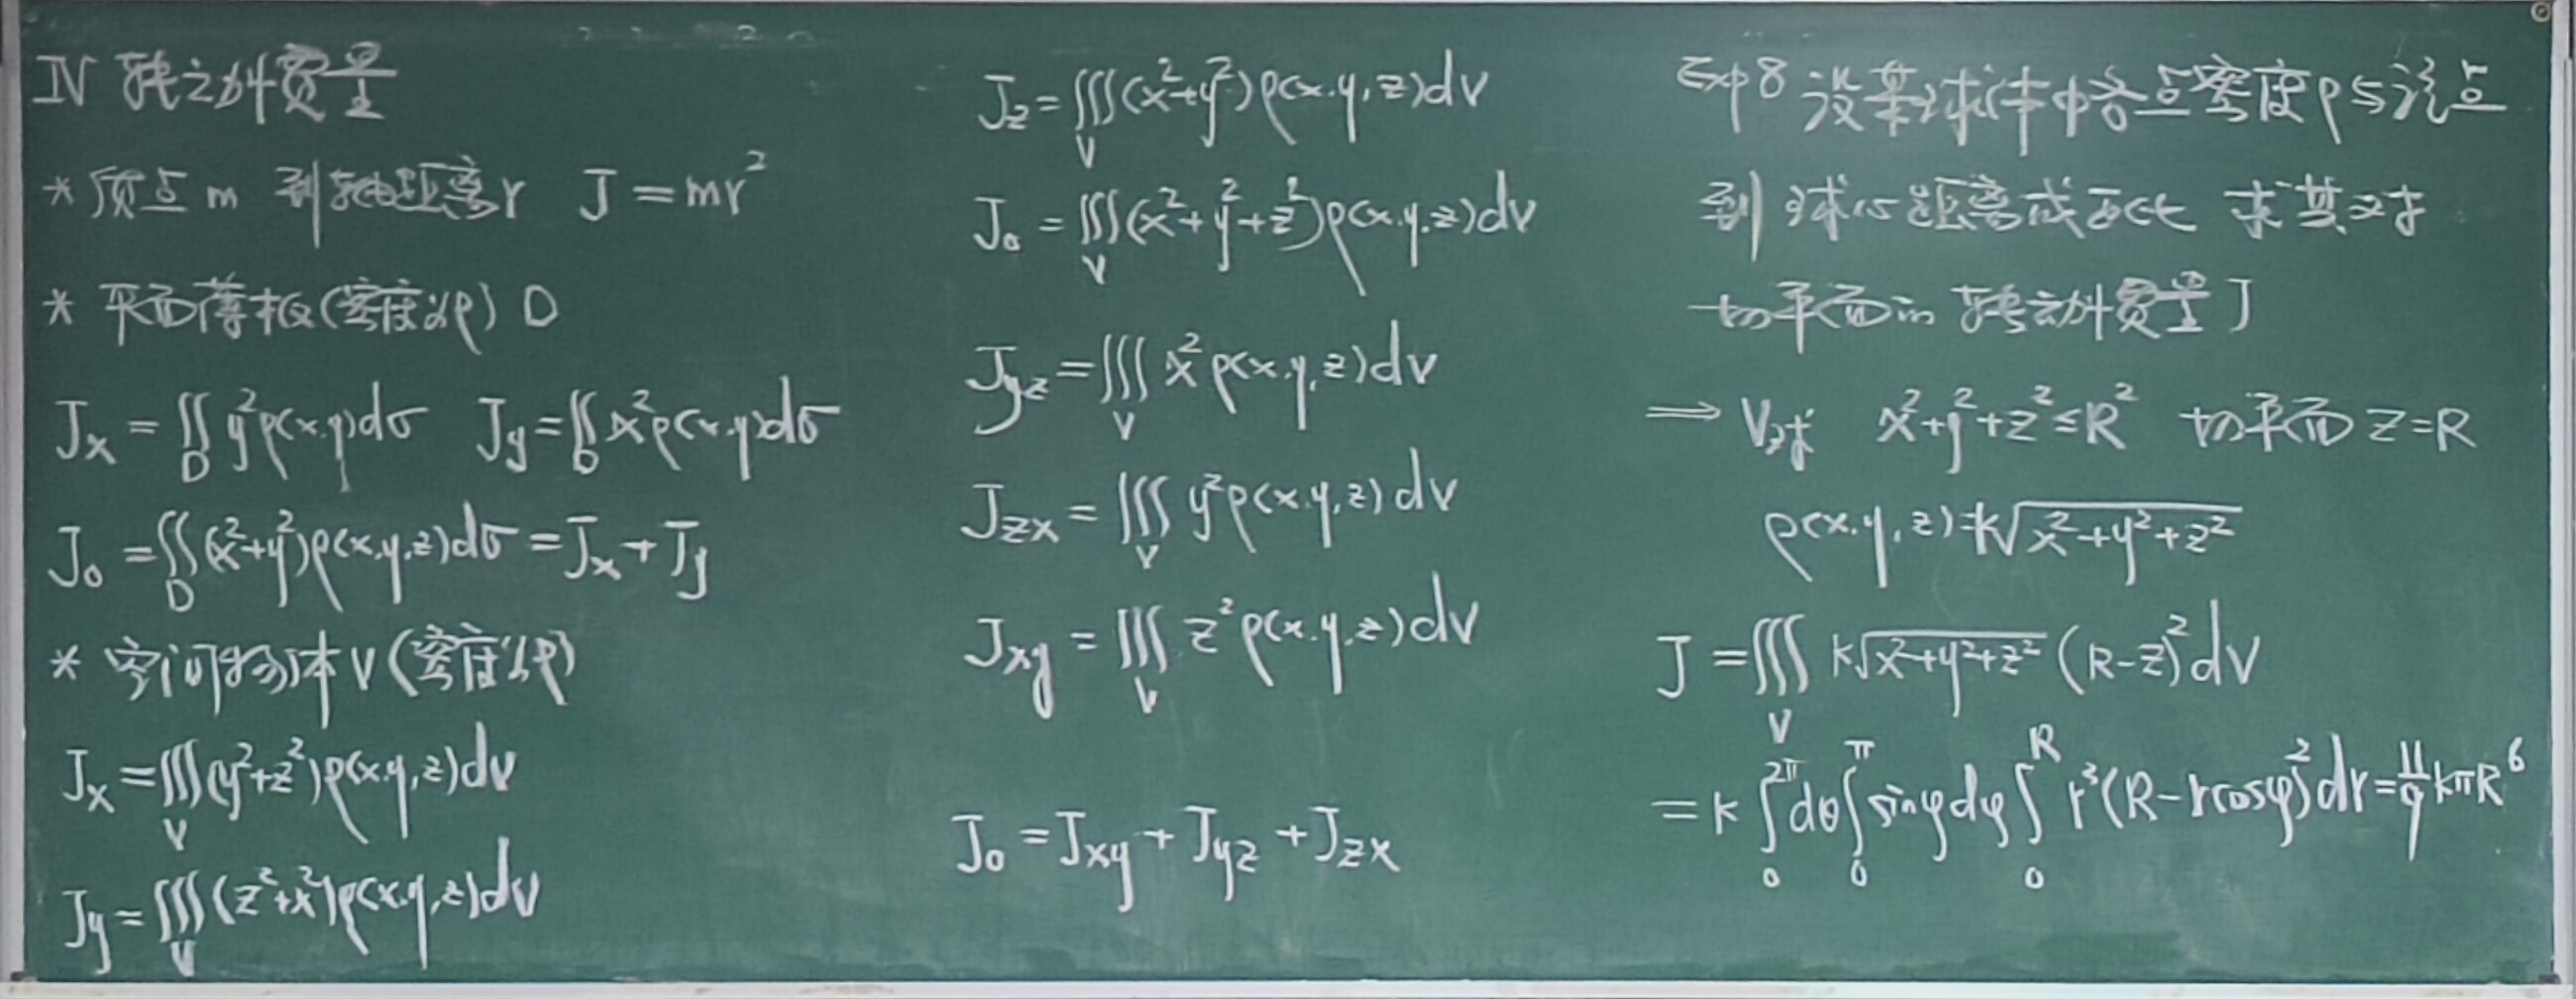 IV 转动惯量
* 质点 m 到轴距离 r J = mr²
* 平面薄板(密度以ρ) D
J_x = ∬_D y²ρ(x,y)dσ J_y = ∬_D x²ρ(x,y)dσ
J_0 = ∬_D (x²+y²)ρ(x,y,z)dσ = J_x + J_y
* 空间物体 V (密度以ρ)
J_x = ∭_V (y²+z²)ρ(x,y,z)dv
J_y = ∭_V (z²+x²)ρ(x,y,z)dv
J_z = ∭_V (x²+y²)ρ(x,y,z)dv
J_0 = ∭_V (x²+y²+z²)ρ(x,y,z)dv
J_yz = ∭_V x²ρ(x,y,z)dv
J_zx = ∭_V y²ρ(x,y,z)dv
J_xy = ∭_V z²ρ(x,y,z)dv
J_0 = J_xy + J_yz + J_zx
Exp 8 设某球体中各点密度ρ与该点
到球心距离成正比 求其对
切平面的转动惯量 J
⇒ V球 x²+y²+z²≤R² 切平面 z=R
ρ(x,y,z)=k√(x²+y²+z²)
J = ∭_V k√(x²+y²+z²) (R-z)² dv
= k ∫_0^{2π} dθ ∫_0^π sinφdφ ∫_0^R r³(R-rcosφ)² dr = 11/9 kπR⁶